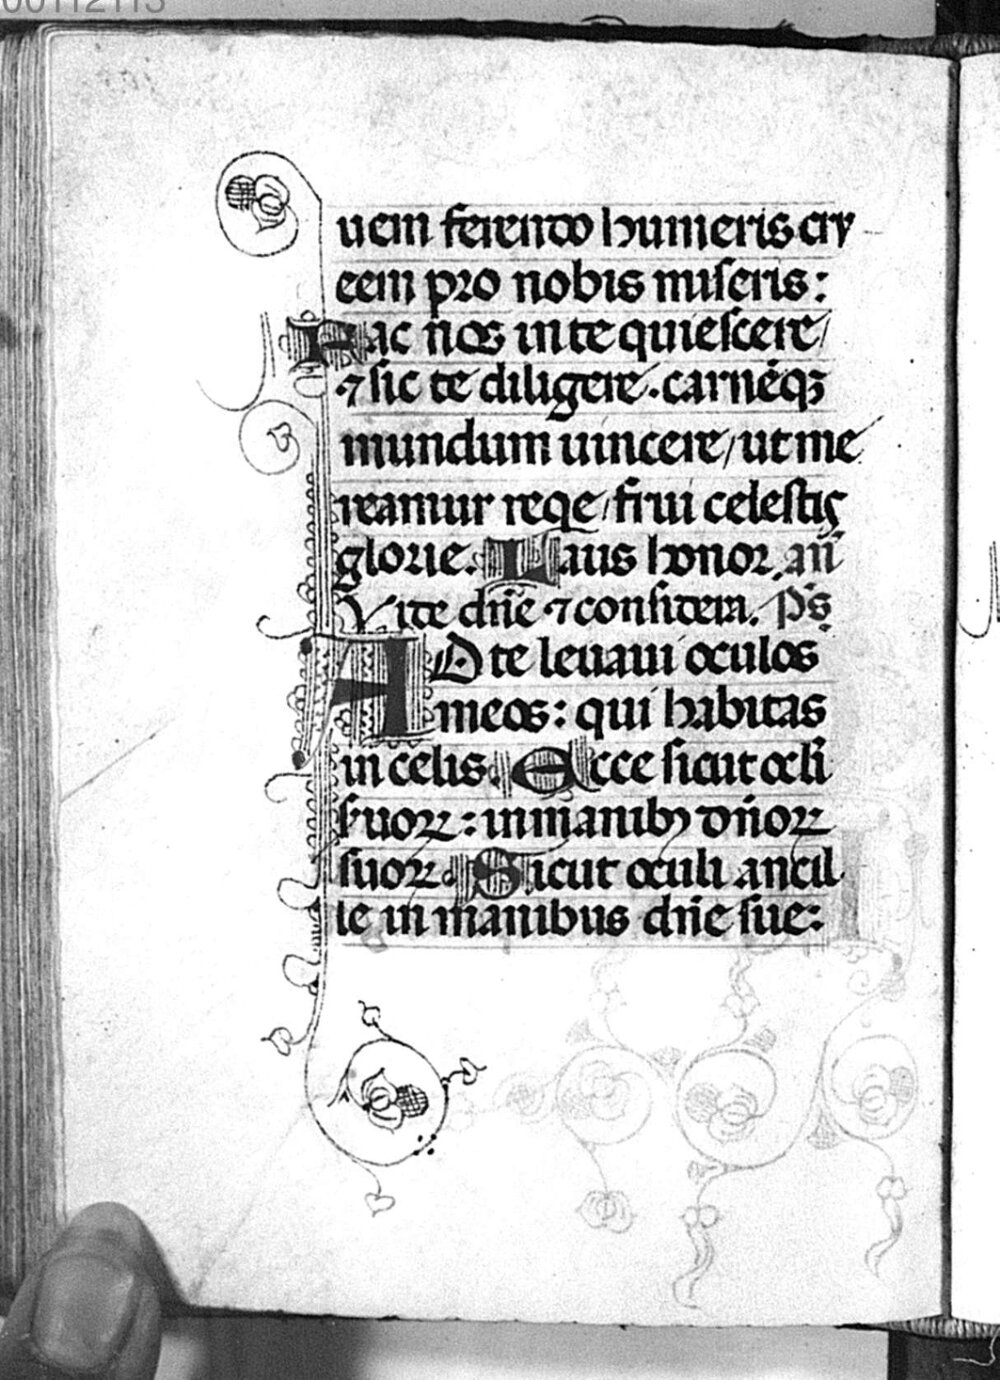 00112113
uem ferendo humeris cru
cem pro nobis miseris:
Fac nos in te quiescere/
⁊ sic te diligere. carnēqꝫ
mundum uincere/ ut me
reamur reqe/ frui celestis
glorie. Laus honor. añ
Vite dn̄e ⁊ confitem. Ps̄
AD te leuaui oculos
meos: qui habitas
in celis. Ecce sicut ocl̄i
suoꝝ: in manibꝫ dn̄oꝝ
suoꝝ. Sicut oculi ancil
le in manibus dn̄e sue: